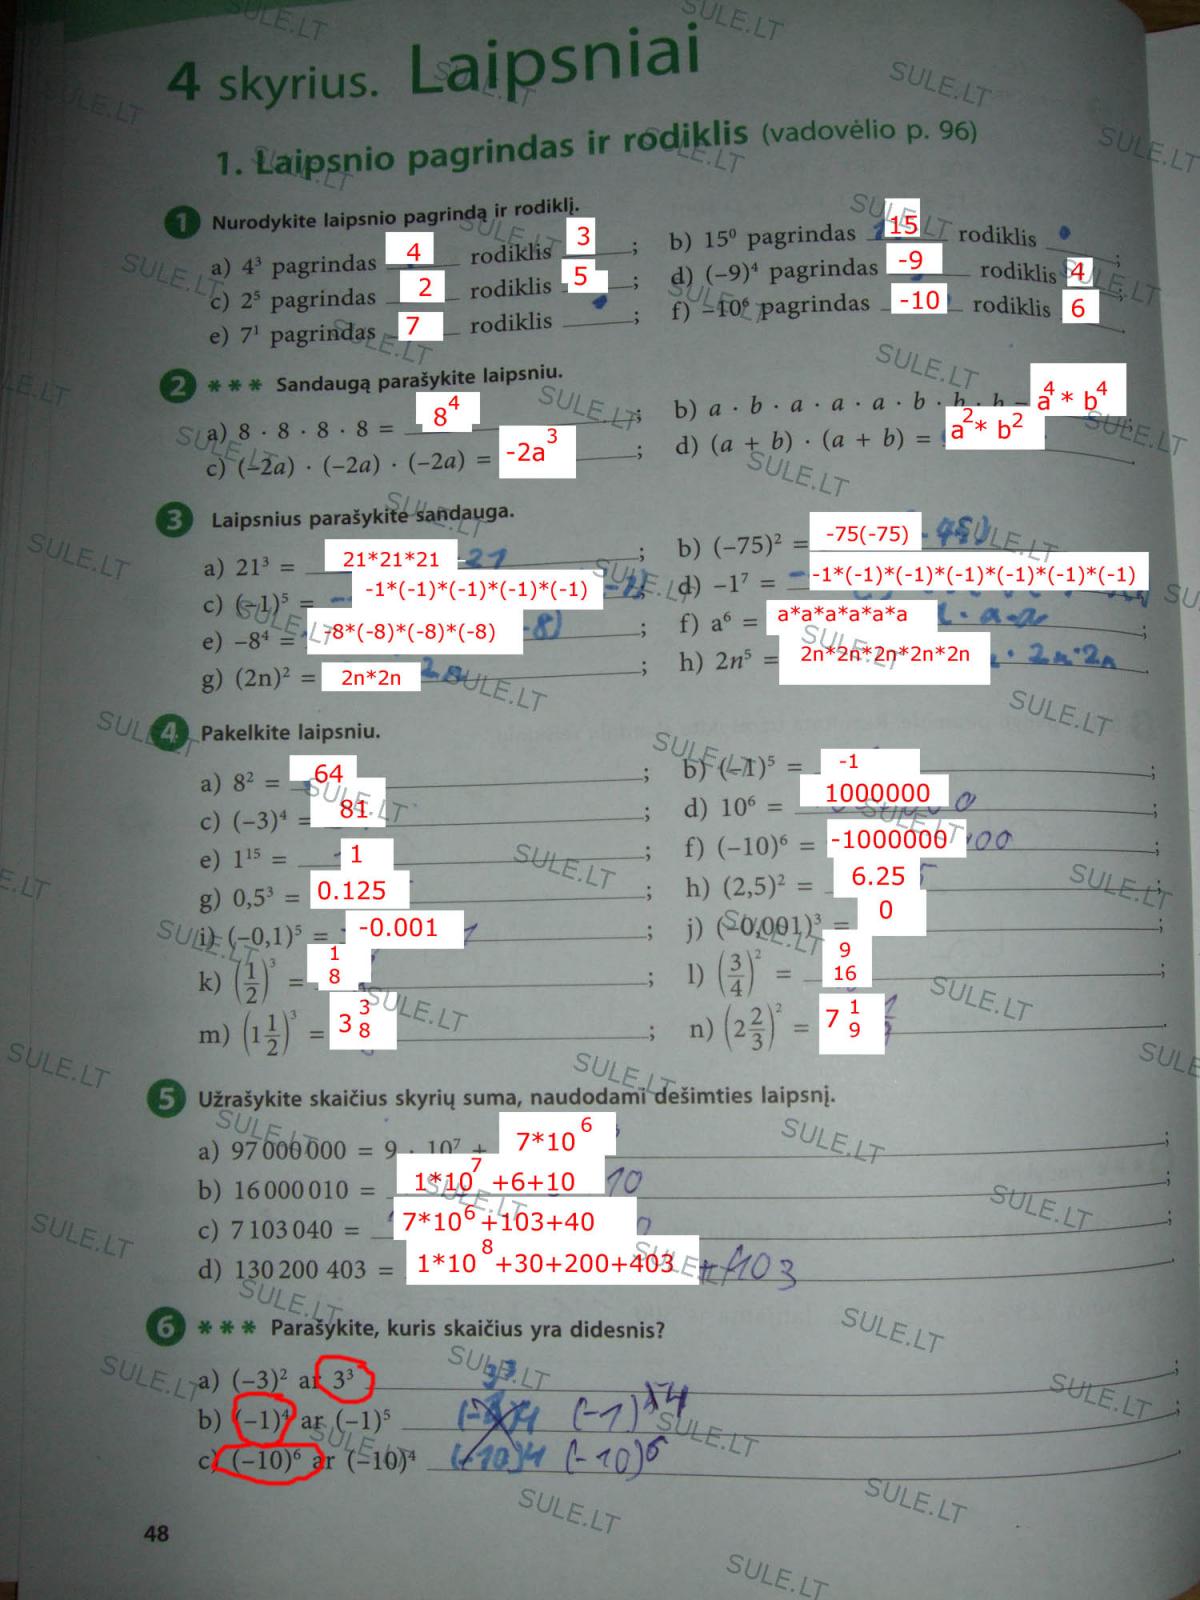 4 skyrius. Laipsniai
1. Laipsnio pagrindas ir rodiklis (vadovėlio p. 96)
1 Nurodykite laipsnio pagrindą ir rodiklį.
a) 4³ pagrindas 4 rodiklis 3 ; b) 15⁰ pagrindas 15 rodiklis ;
c) 2⁵ pagrindas 2 rodiklis 5 ; d) (−9)⁴ pagrindas -9 rodiklis 4 ;
e) 7¹ pagrindas 7 rodiklis ; f) −10⁶ pagrindas -10 rodiklis 6
2 *** Sandaugą parašykite laipsniu.
a) 8 · 8 · 8 · 8 = 8⁴ ; b) a · b · a · a · a · b · b · b = a⁴ * b⁴ ;
c) (−2a) · (−2a) · (−2a) = -2a³ ; d) (a + b) · (a + b) = a² * b²
3 Laipsnius parašykite sandauga.
a) 21³ = 21*21*21 ; b) (−75)² = -75(-75)
c) (−1)⁵ = -1*(-1)*(-1)*(-1)*(-1) ; d) −1⁷ = -1*(-1)*(-1)*(-1)*(-1)*(-1)*(-1)
e) −8⁴ = -8*(-8)*(-8)*(-8) ; f) a⁶ = a*a*a*a*a*a ;
g) (2n)² = 2n*2n ; h) 2n⁵ = 2n*2n*2n*2n*2n
4 Pakelkite laipsniu.
a) 8² = 64 ; b) (−1)⁵ = -1 ;
c) (−3)⁴ = 81 ; d) 10⁶ = 1000000 ;
e) 1¹⁵ = 1 ; f) (−10)⁶ = -1000000 ;
g) 0,5³ = 0.125 ; h) (2,5)² = 6.25 ;
i) (−0,1)⁵ = -0.001 ; j) (−0,001)³ = 0 ;
k) (1/2)³ = 1/8 ; l) (3/4)² = 9/16 ;
m) (1 1/2)³ = 3 3/8 ; n) (2 2/3)² = 7 1/9
5 Užrašykite skaičius skyrių suma, naudodami dešimties laipsnį.
a) 97 000 000 = 9 · 10⁷ + 7*10⁶ ;
b) 16 000 010 = 1*10⁷ +6+10 ;
c) 7 103 040 = 7*10⁶ +103+40 ;
d) 130 200 403 = 1*10⁸ +30+200+403 +403
6 *** Parašykite, kuris skaičius yra didesnis?
a) (−3)² ar 3³ 3³ ;
b) (−1)⁴ ar (−1)⁵ (-1)⁴ ;
c) (−10)⁶ ar (−10)⁴ (-10)⁴ (-10)⁶
48
SULE.LT